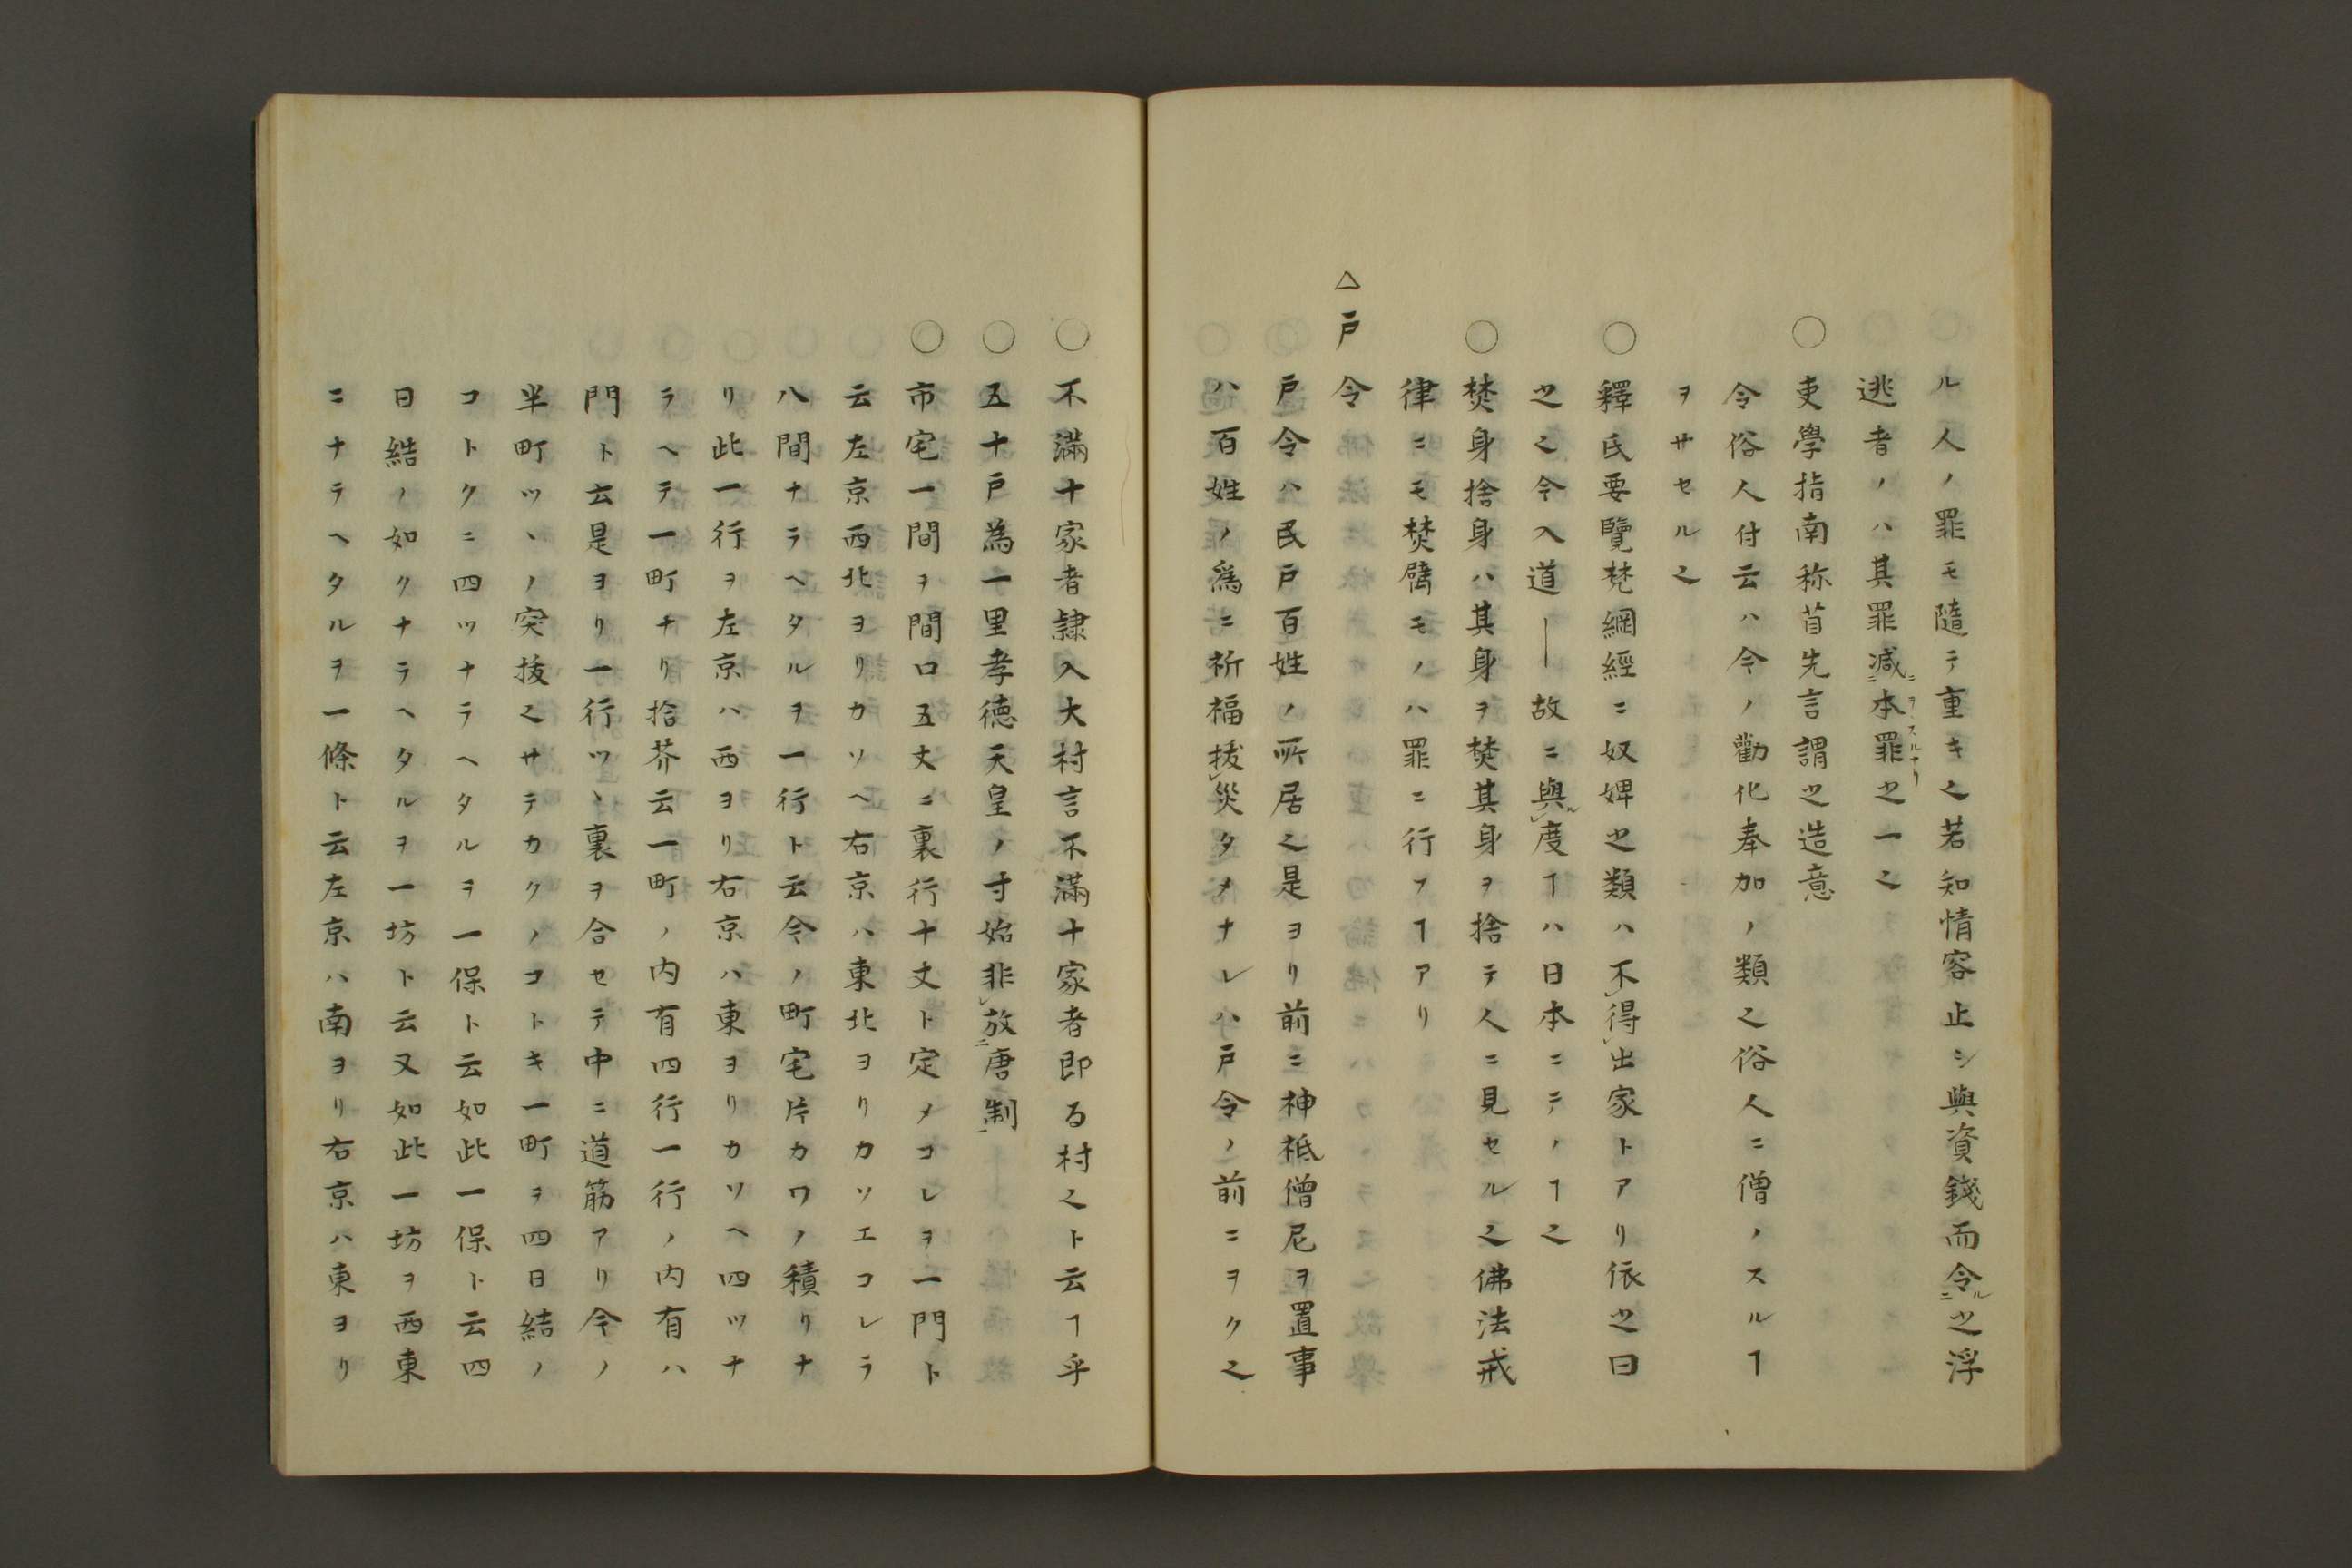 ル人ノ罪モ隨テ重キ之若知情容止シ與資錢而令ニル之浮
逃者ノハ其罪減ニ本罪之一ニヲスルナリ之
○吏學指南称首先言謂之造意
令俗人付云ハ令ノ勸化奉加ノ類之俗人ニ僧ノスルヿ
ヲサセル之
○釋氏要覽梵網經ニ奴婢之類ハ不レ得レ出家トアリ依之曰
之之令入道――故ニ與ルレ度ヿハ日本ニテノヿ之
○焚身捨身ハ其身ヲ焚其身ヲ捨テ人ニ見セル之佛法戒
律ニモ焚臂モノハ罪ニ行フヿアリ
△戸令
戸令ハ民戸百姓ノ所居之是ヨリ前ニ神祇僧尼ヲ置事
ハ百姓ノ爲ニ祈福拔レ災タメナレハ戸令ノ前ニヲク之
○不滿十家者隷入大村言不滿十家者即る村之ト云ヿ乎
○五十戸為一里孝德天皇ノ寸始非レ放ニ唐制一
○市宅一間ヲ間口五丈ニ裏行十丈ト定メコレヲ一門ト
云左京西北ヨリカソヘ右京ハ東北ヨリカソエコレラ
八間ナラヘタルヲ一行ト云令ノ町宅片カワノ積リナ
リ此一行ヲ左京ハ西ヨリ右京ハ東ヨリカソヘ四ツナ
ラヘテ一町ナリ拾芥云一町ノ内有四行一行ノ内有八
門ト云是ヨリ一行ツヽ裏ヲ合セテ中ニ道筋アリ今ノ
半町ツヽノ突拔之サテカクノコトキ一町ヲ四日結ノ
コトクニ四ツナラヘタルヲ一保ト云如此一保ト云四
日結ノ如クナラヘタルヲ一坊ト云又如此一坊ヲ西東
ニナラヘタルヲ一條ト云左京ハ南ヨリ右京ハ東ヨリ